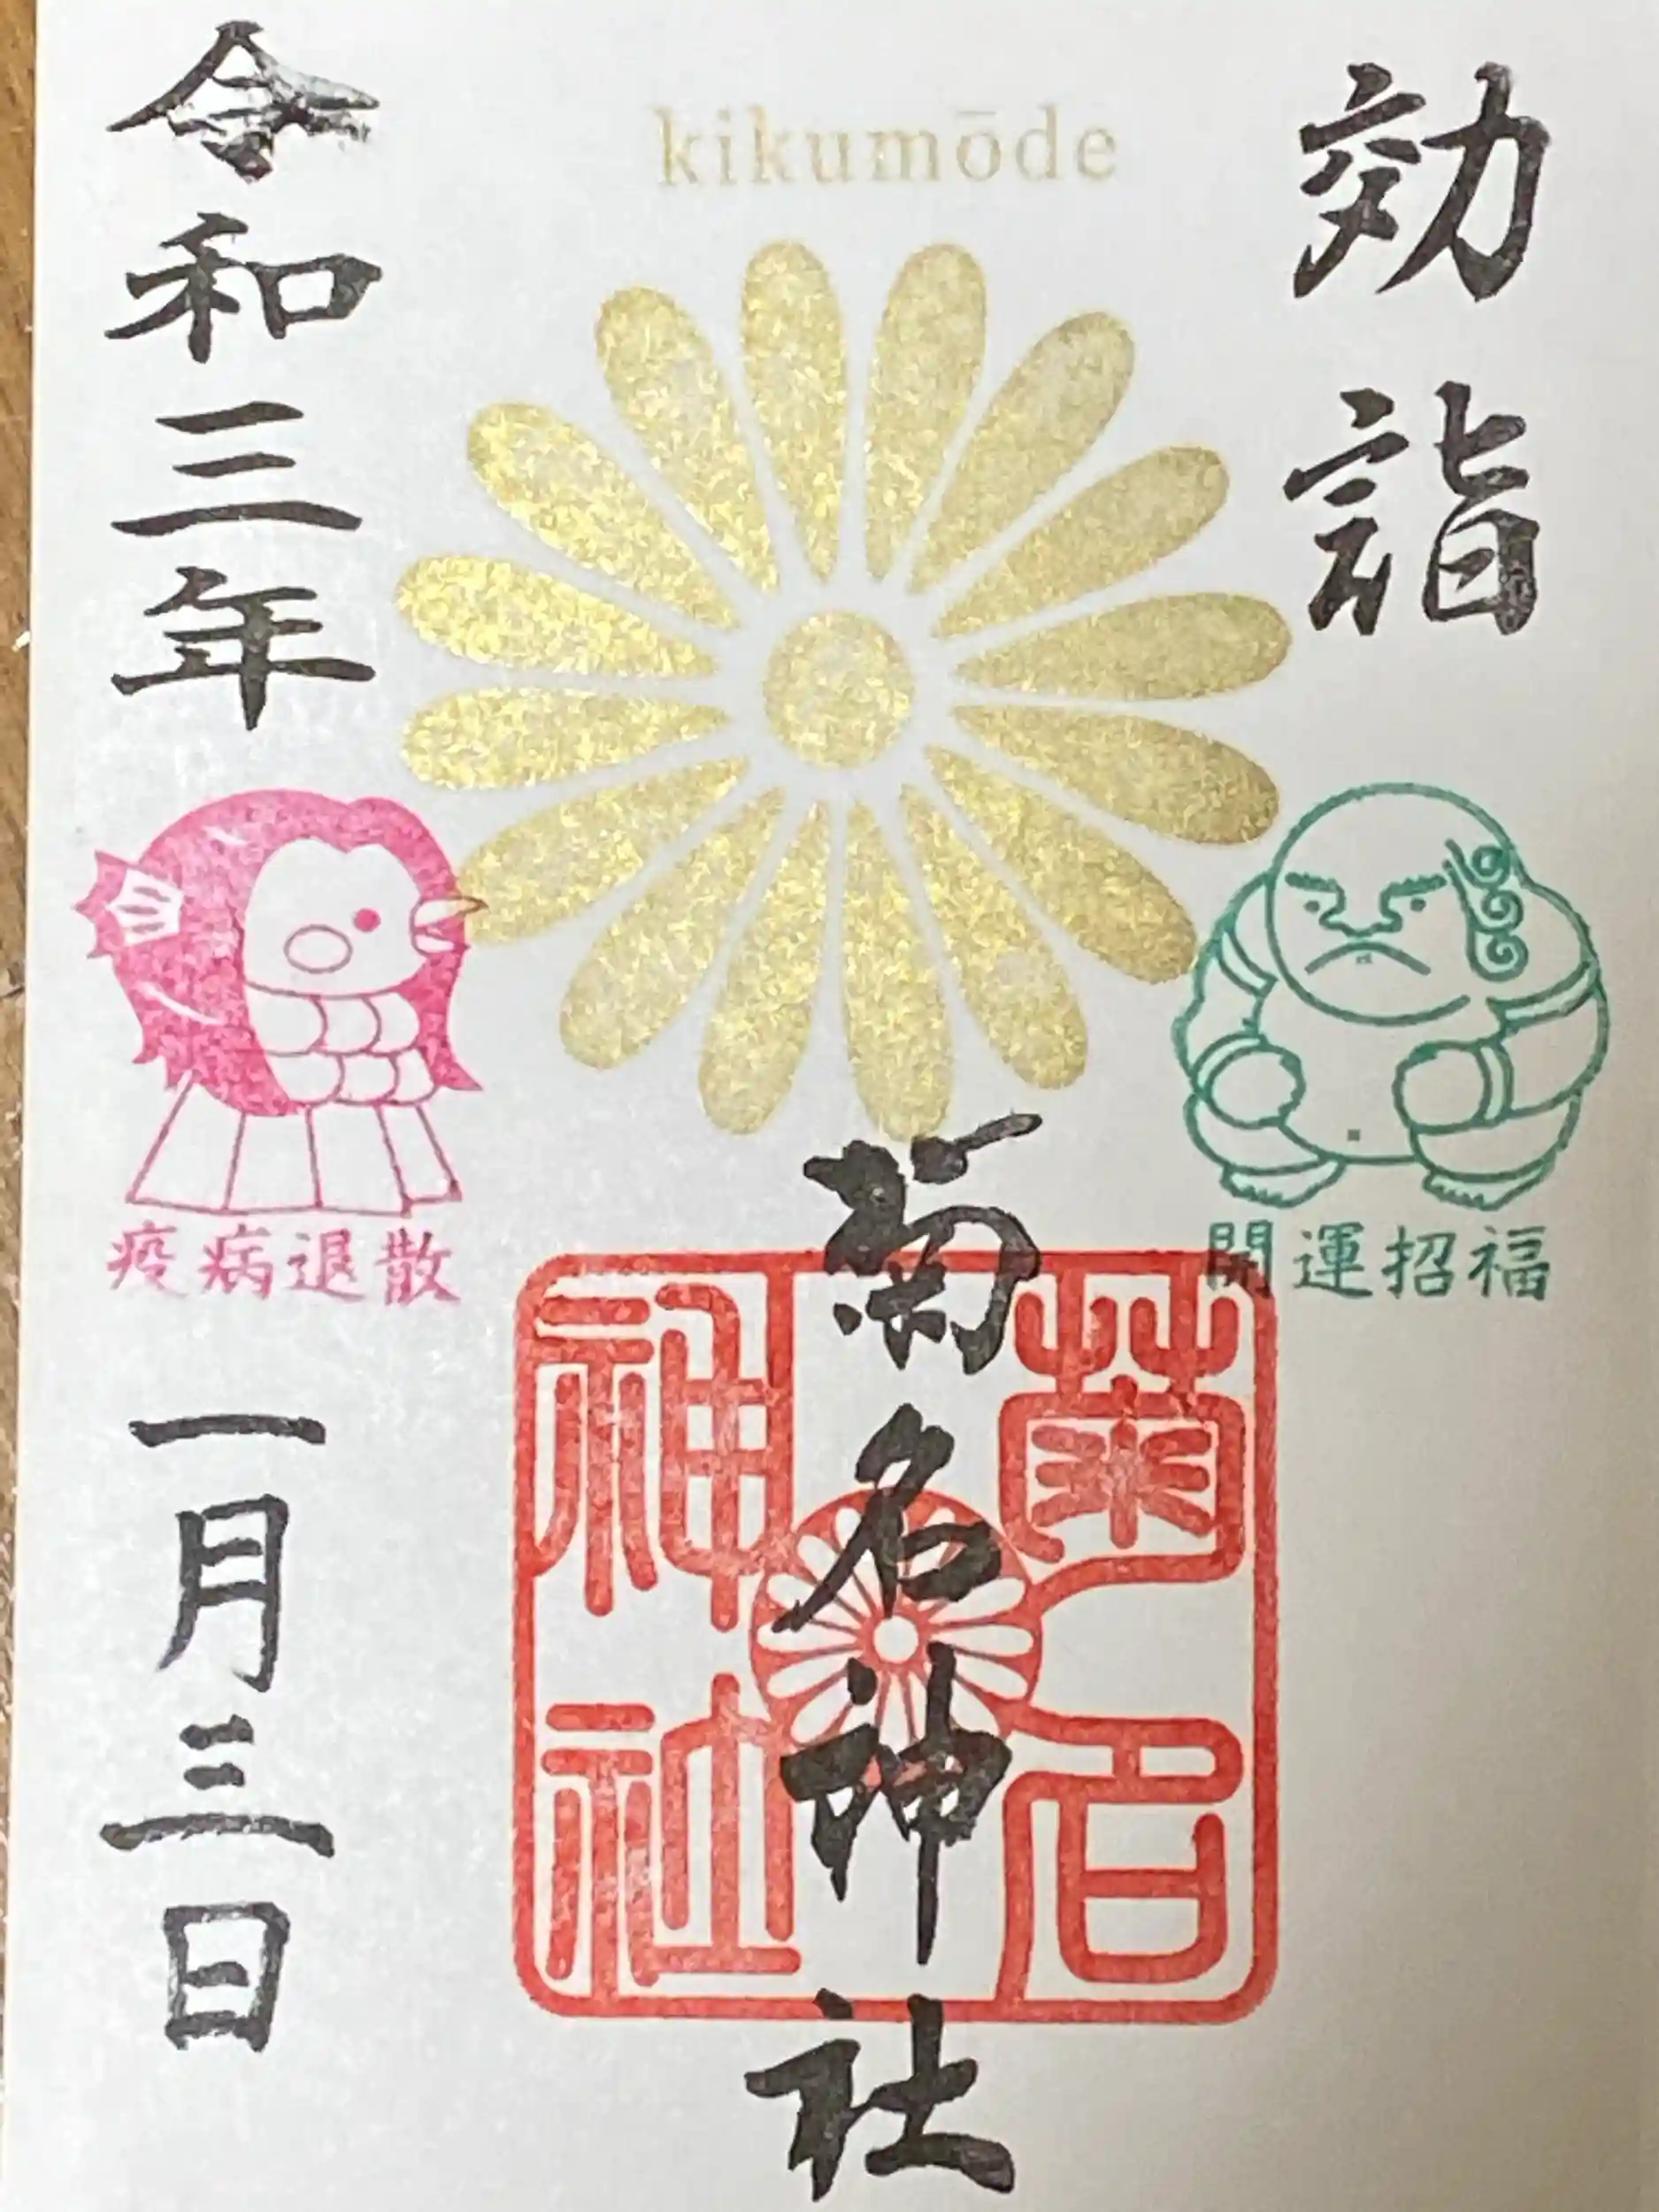 kikumōde
効詣
開運招福
菊名神社
菊名神社
令和三年
疫病退散
一月三日